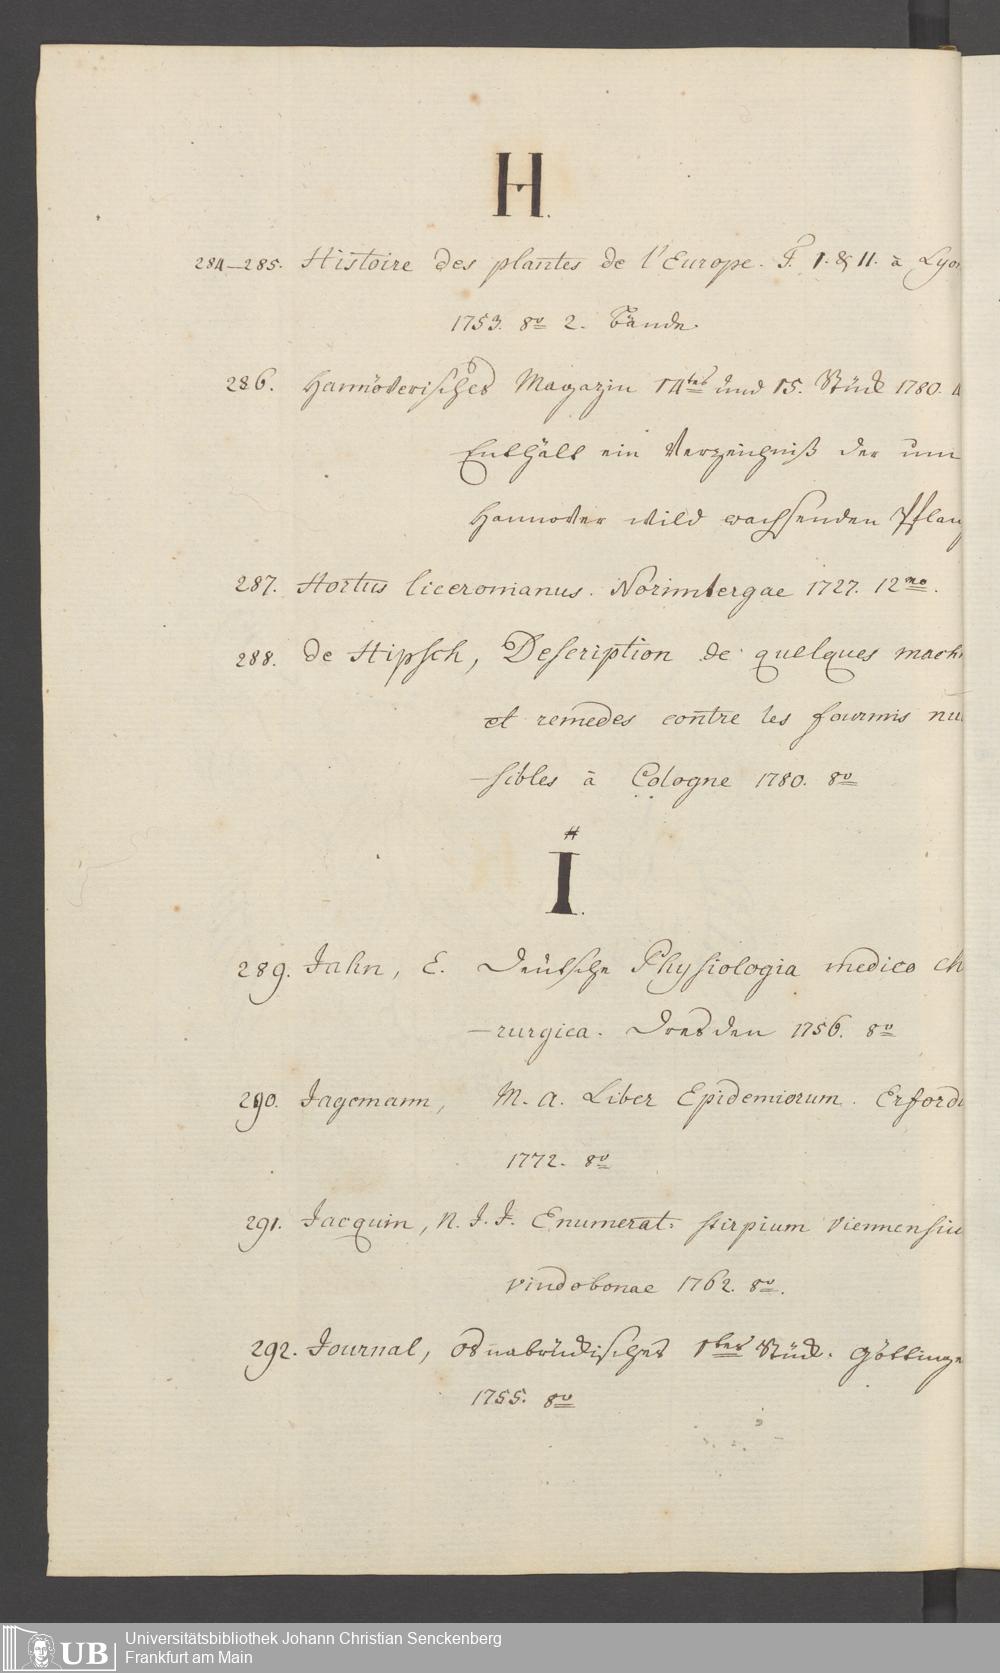 H.
284–285. Histoire des plantes de l'Europe. T. I. & II. à Lyon
1753. 8º 2. Bände.
286. Hannöverisches Magazin 14tes und 15. Stück 1780. 4
Enthält ein Verzeichniß der um
Hannover wild wachsenden Pflanz
287. Hortus Ciceronianus. Norimbergae 1727. 12mo.
288. de Hipsch, Description de quelques mach
et remedes contre les fourmis nui
–sibles à Cologne 1780. 8º
#
I.
289. Jahn, E. Deütsche Physiologia medico ch
–rurgica. Dresden 1756. 8º
290. Jagemann, M. A. Liber Epidemiorum. Erford
1772. 8º
291. Jacquin, N. J. F. Enumerat. stirpium viennensiu
vindobonae 1762. 8º.
292. Journal, osnabrückisches 1tes Stück. Göttinge
1755. 8º
UB
Universitätsbibliothek Johann Christian Senckenberg
Frankfurt am Main